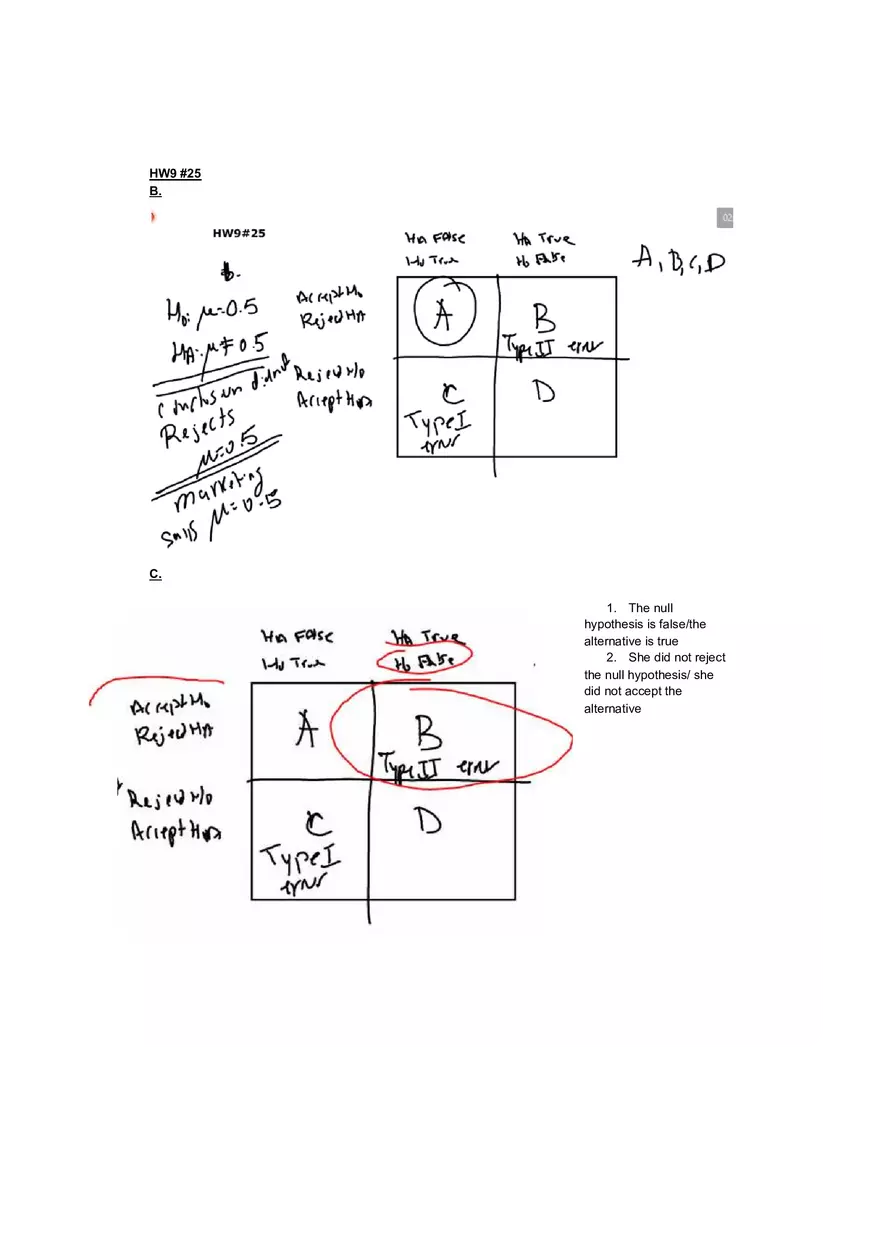 HW9 #25
B.
02
HW9#25
b.
H0: μ=0.5
HA: μ≠0.5
Rejects
μ=0.5
marketing
says μ=0.5
HA False
HA True
H0 True
H0 False
A, B, C, D
Accept H0
Reject HA
Reject H0
Accept HA
A
B
Type II error
C
Type I
error
D
C.
HA False
HA True
H0 True
H0 False
Accept H0
Reject HA
Reject H0
Accept HA
A
B
Type II error
C
Type I
error
D
1. The null
hypothesis is false/the
alternative is true
2. She did not reject
the null hypothesis/ she
did not accept the
alternative